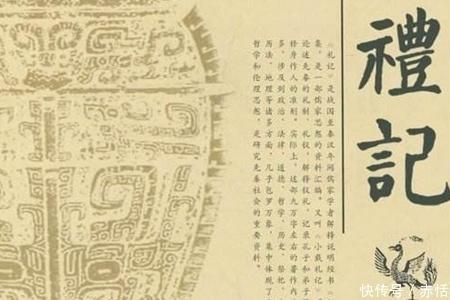 禮記
《礼记》是战国至秦汉年间儒家学者解释说明经书《
集，是一部儒家思想的资料汇编。又叫《小戴礼记》
论述先秦的礼制、礼仪，解释仪礼，记录孔子和弟子
修身作人的准则。实际上，这部九万字左右的著作
多，涉及到政治、法律、道德、哲学、历史、祭祀、
历法、地理等诸多方面，几乎包罗万象，集中体现了
哲学和伦理思想，是研究先秦社会的重要资料。
快传号 / 赤恬